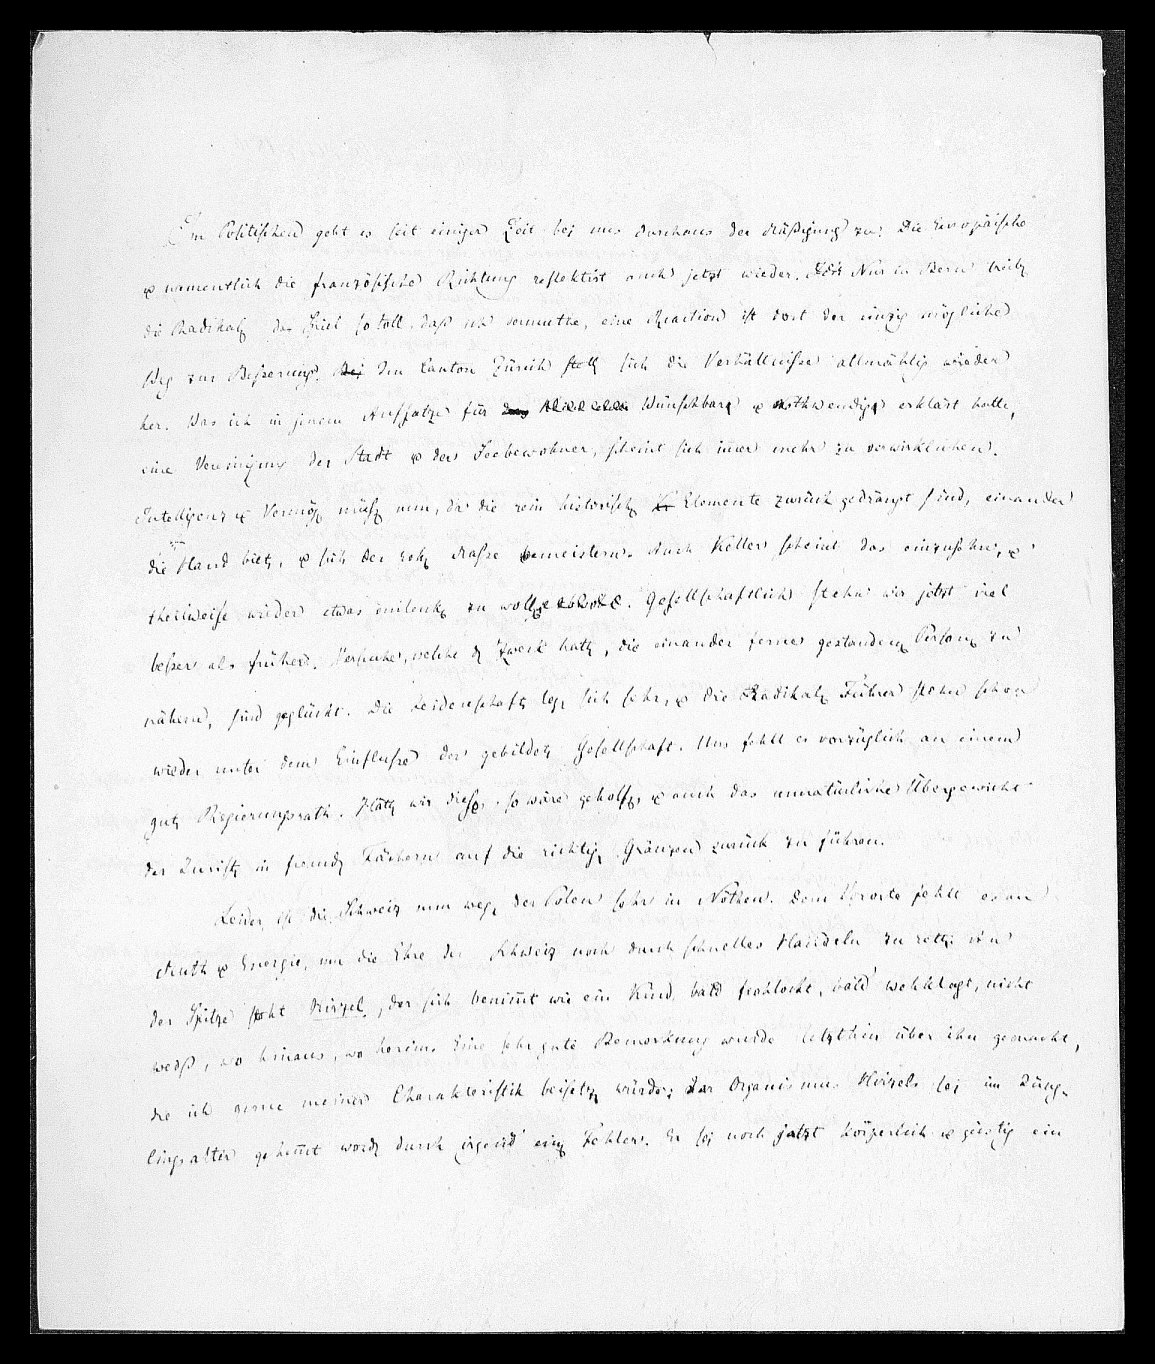 Im Politischen geht es seit einiger Zeit bei uns durchaus der Mäßigung zu. Die Europäische
u namentlich die französische Richtung reflektirt auch jetzt wieder. Nur in Bern treiben
die Radikalen das Spiel so toll, daß ich vermuthe, eine Reaction ist dort der einzig mögliche
Weg zur Besserung. Bei Im Canton Zürich stellen sich die Verhältnisse allmählig wieder
her. Was ich in jenem Aufsatze für Wünschbar u nothwendig erklärt hatte,
eine Vereinigung der Stadt u der Seebewohner, scheint sich immer mehr zu verwirklichen.
Intelligenz u Vermögen müssen nun, da die rein historischen Elemente zurück gedrängt sind, einander
die Hand bieten, u sich der rohen Masse bemeistern. Auch Keller scheint das einzusehen, u
theilweise wieder etwas einlenken zu wollen. Gesellschaftlich stehn wir jetzt viel
besser als früher. Versuche, welche den Zweck hatten, die einander ferne gestandenen Personen zu
nähern, sind geglückt. Die Leidenschaften legen sich sehr, u die Radikalen Führer stehen schon
wieder unter dem Einflusse der gebildeten Gesellschaft. Uns fehlt es vorzüglich an einem
guten Regierungsrath. Hätten wir diesen, so wäre geholfen, u auch das unnatürliche Übergewicht
der Juristen in fremden Fächern auf die richtigen Gränzen zurück zu führen.
Leider ist die Schweiz nun wegen der Polen sehr in Nöthen. Dem Vororte fehlt es an
Muth u Energie, um die Ehre der Schweiz noch durch schnelles Handeln zu retten. An
der Spitze steht Hirzel, der sich benimmt wie ein Kind, bald frohlockt, bald wehklagt, nicht
weiß, wo hinaus, wo herein. Eine sehr gute Bemerkung wurde letzthin über ihn gemacht,
die ich gerne meiner Charakteristik beisetzen würde; der Organismus Hirzels sei im Jüng-
lingsalter gehemmt worden durch irgend einen Fehler. Er sei noch jetzt körperlich u geistig ein